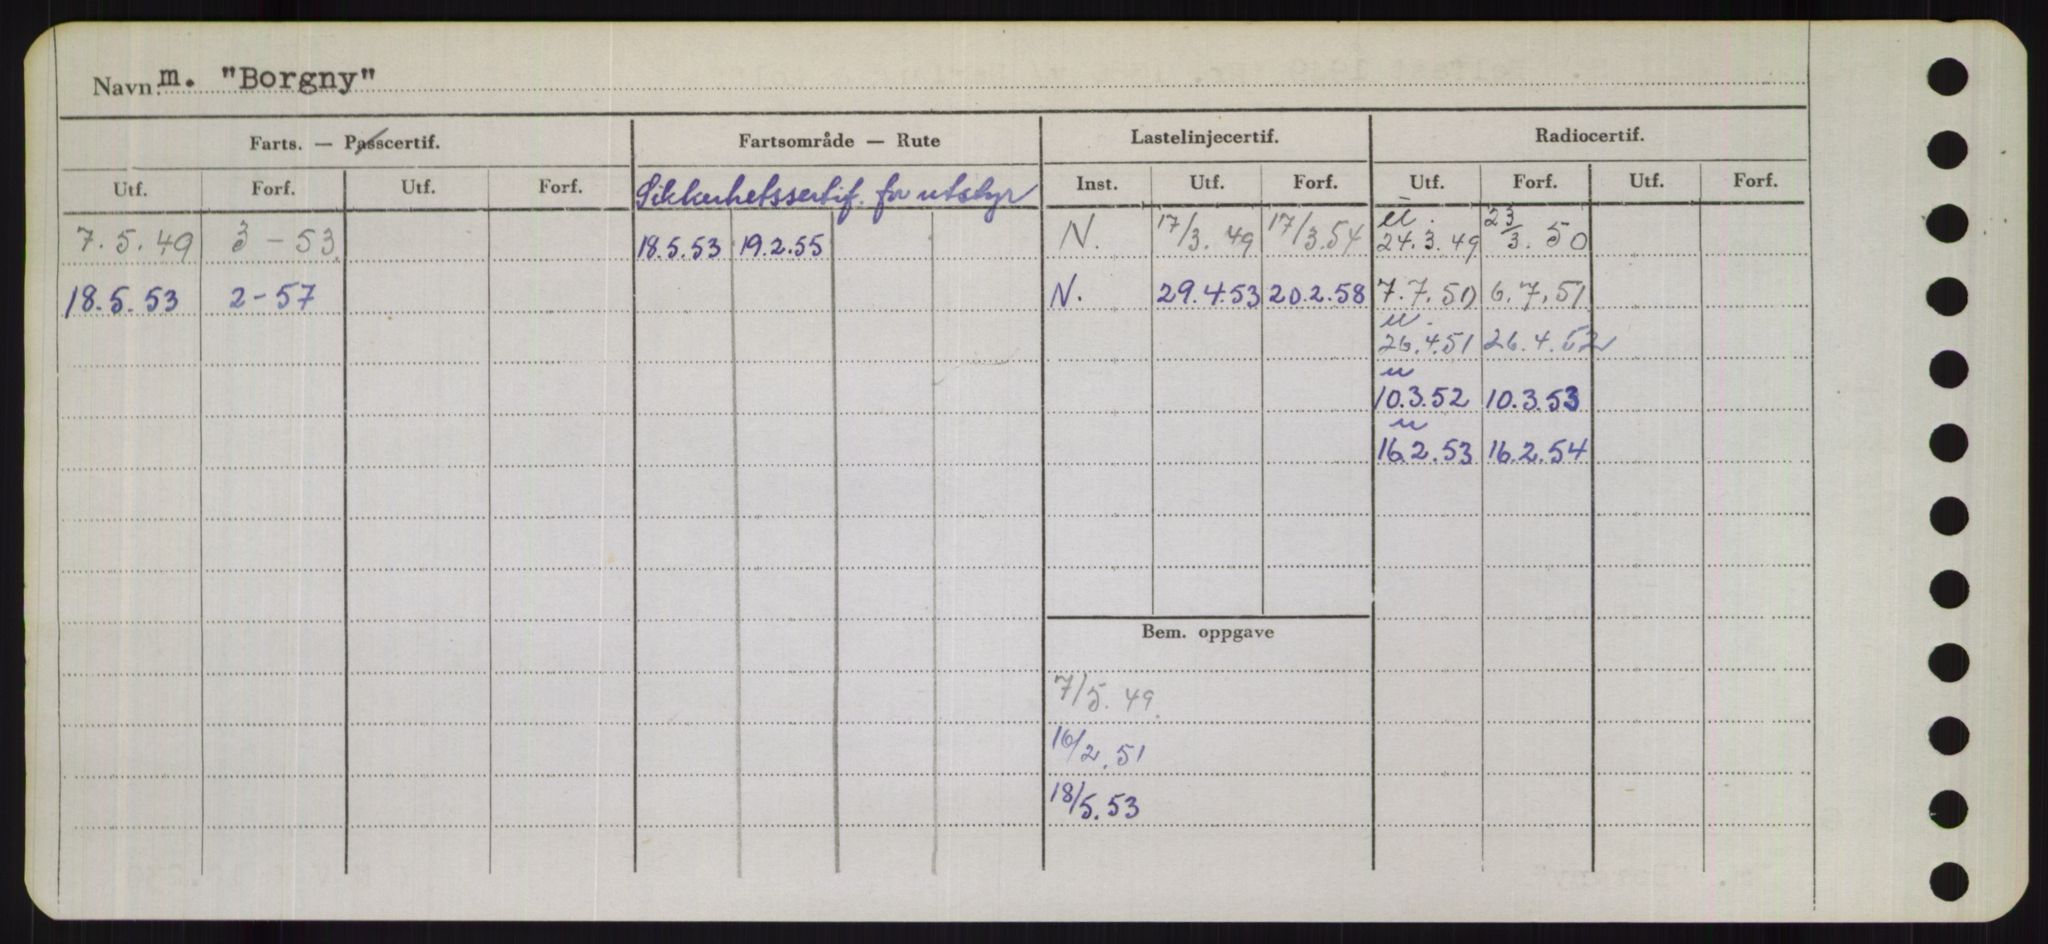 Navn m. "Borgny"
Farts. — Passcertif. Fartsområde — Rute Lastelinjecertif. Radiocertif.
Utf. Forf. Utf. Forf. Sikkerhetssertif. for utstyr Inst. Utf. Forf. Utf. Forf. Utf. Forf.
7.5.49 3 - 53 18.5.53 19.2.55 N. 17/3. 49 17/3.54 24.3.49 23/3. 50
18.5.53 2-57 N. 29.4.53 20.2.58 7.7.50 6.7.51
26.4.51 26.4.52
10.3.52 10.3.53
16.2.53 16.2.54
Bem. oppgave
7/5. 49
16/2.51
18/5.53